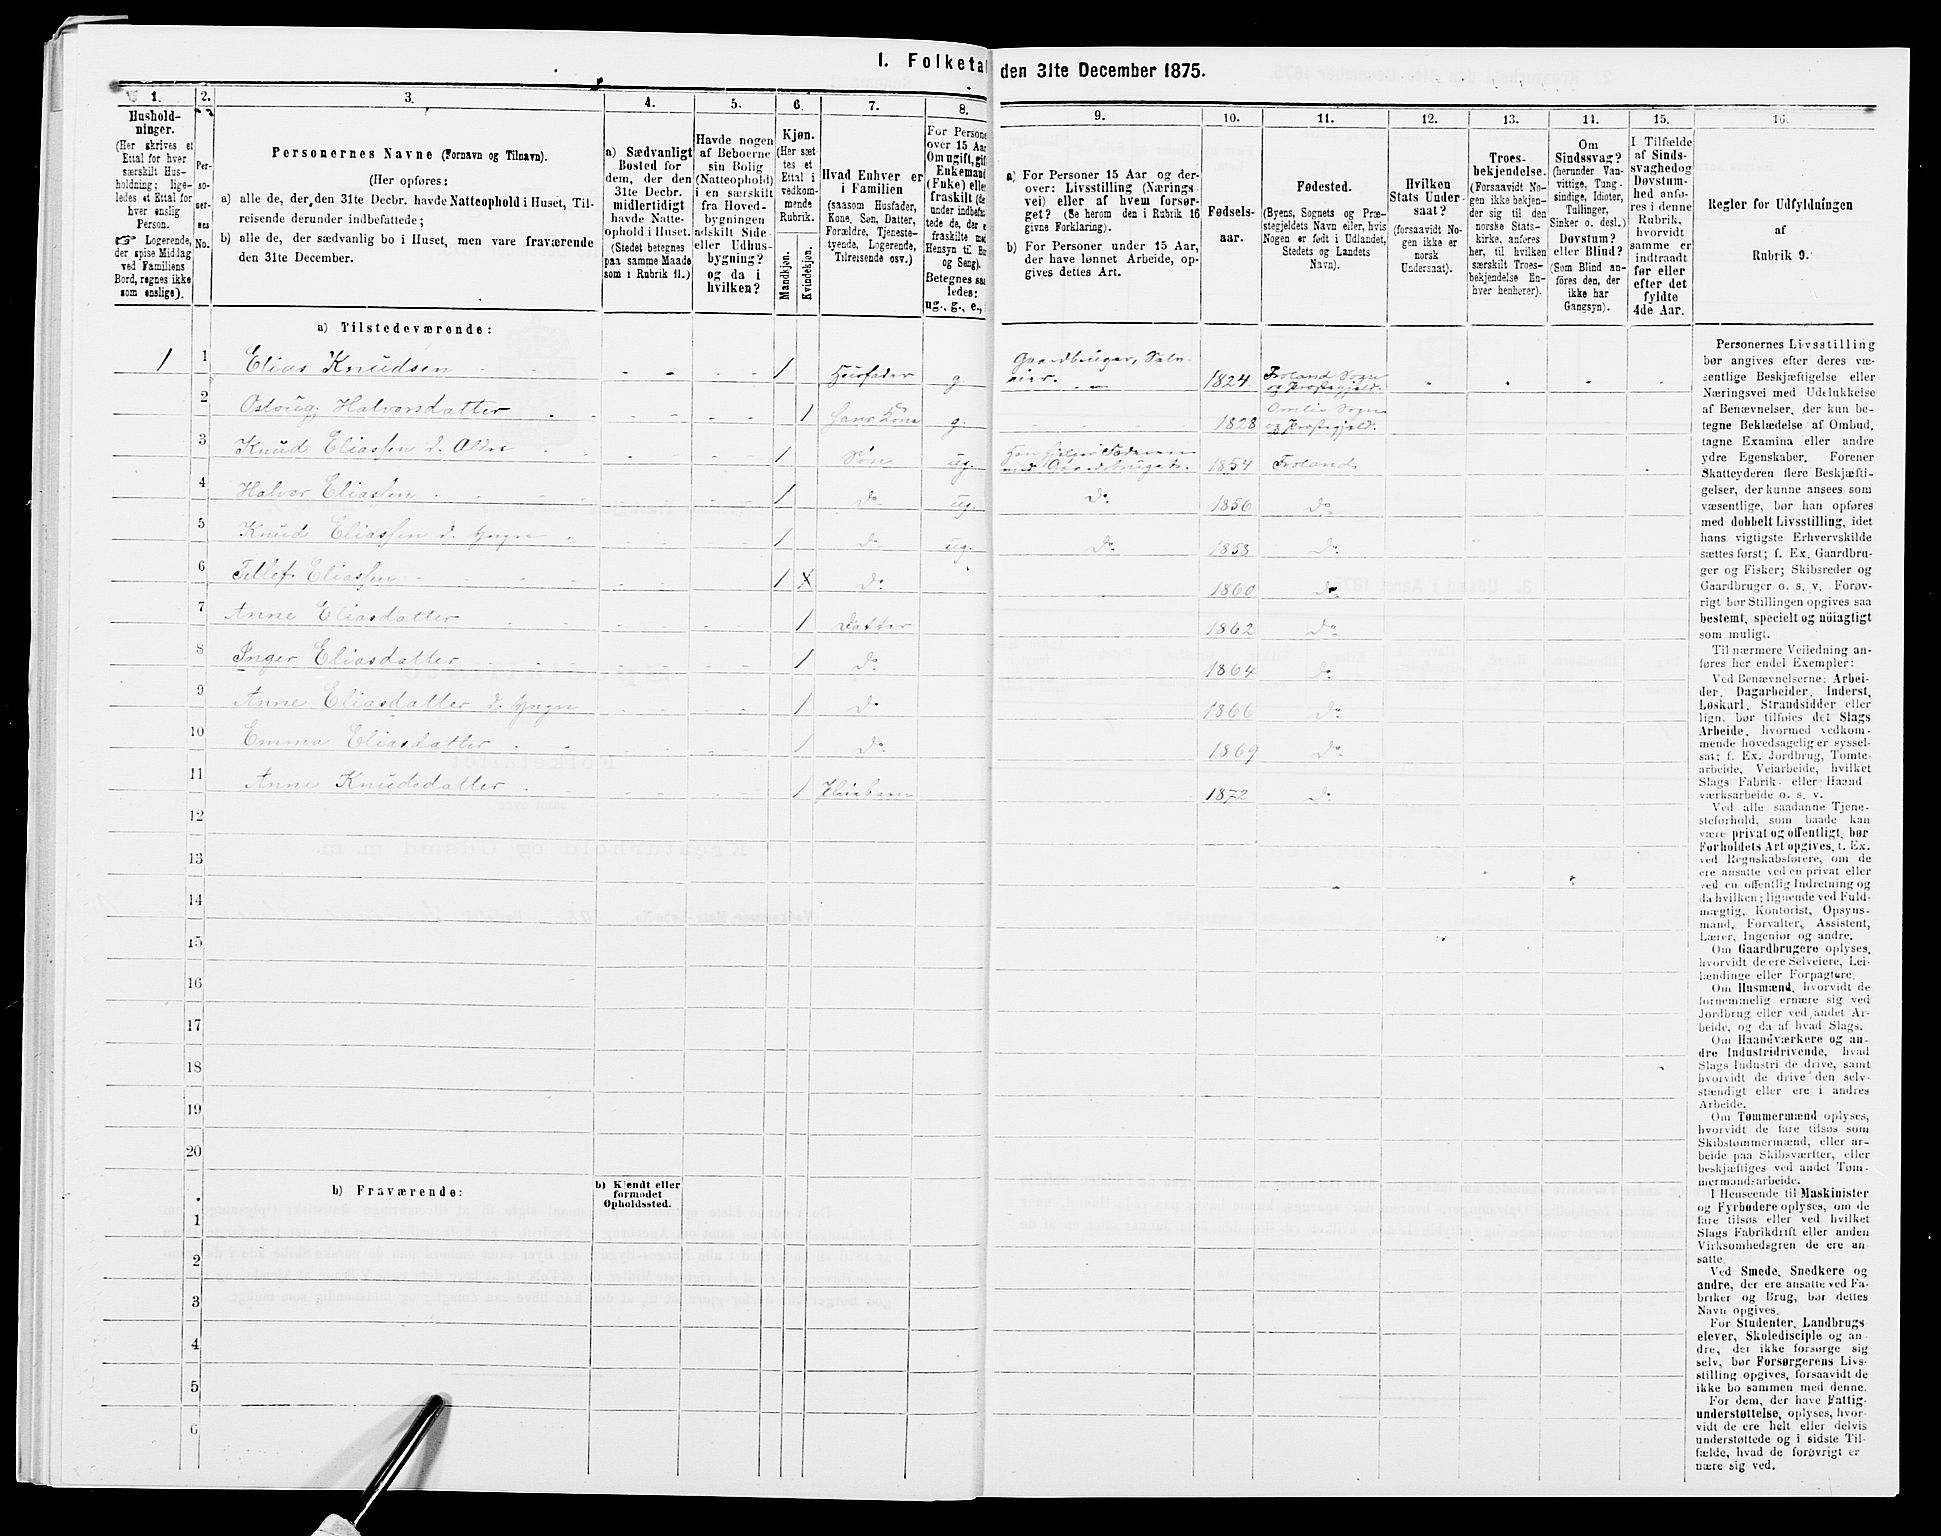 1. Folketal
den 31te December 1875.
1.
2.
3.
4.
5.
6.
7.
8.
9.
10.
11.
12.
13.
14.
15.
16.
Hushold-
ninger.
(Her skrives et
Ettal for hver
særskilt Hus-
holdning; lige-
ledes et Ettal for
hver enslig
Person.
☞ Logerende,
der spise Middag
ved Familiens
Bord, regnes ikke
som enslige).
Per-
so-
ner-
nes
No.
Personernes Navne (Fornavn og Tilnavn).
(Her opføres:
a) alle de, der den 31te Decbr. havde Natteophold i Huset, Til-
reisende derunder indbefattede;
b) alle de, der sædvanlig bo i Huset, men vare fraværende
den 31te December.
a) Sædvanligt
Bosted for
dem, der den
31te Decbr.
midlertidigt
havde Natte-
ophold i Huset.
(Stedet betegnes
paa samme Maade
som i Rubrik 11.)
Havde nogen
af Beboerne
sin Bolig
(Natteophold)
i en særskilt
fra Hoved-
bygningen
adskilt Side-
eller Udhus-
bygning?
og da i
hvilken?
Kjøn.
(Her sæt-
tes et
Ettal i
vedkom-
mende
Rubrik.
Mandkjøn.
Kvindekjøn.
Hvad Enhver er
i Familien
(saasom Husfader,
Kone, Søn, Datter,
Forældre, Tjeneste-
tyende, Logerende,
Tilreisende osv.)
For Persone
over 15 Aar
Om ugift, gift
Enkemand
(Enke) eller
fraskilt (de
under indbefat-
tede de, der er
fraskilte med
Hensyn til Bo
og Seng).
Betegnes saa
ledes:
ug., g., e.,
a) For Personer 15 Aar og der-
over: Livsstilling (Nærings-
vei) eller af hvem forsør-
get? (Se herom den i Rubrik 16
givne Forklaring).
b) For Personer under 15 Aar,
der have lønnet Arbeide, op-
gives dettes Art.
Fødsels-
aar.
Fødested.
(Byens, Sognets og Præ-
stegjeldets Navn eller, hvis
Nogen er født i Udlandet,
Stedets og Landets
Navn).
Hvilken
Stats Under-
saat?
(forsaavidt No-
gen ikke er
norsk
Undersaat).
Troes-
bekjendelse.
(Forsaavidt No-
gen ikke bekjen-
der sig til den
norske Stats-
kirke, anføres
her, til hvilken
særskilt Troes-
bekjendelse En-
hver henhører).
Om
Sindssvag?
(herunder Van-
vittige, Tung-
sindige, Idioter,
Tullinger,
Sinker o. desl.)
Døvstum?
eller Blind?
(Som Blind an-
føres den, der
ikke har
Gangsyn).
I Tilfælde
af Sinds-
svaghed og
Døvstum-
hed anfø-
res i denne
Rubrik,
hvorvidt
samme er
indtraadt
før eller
efter det
fyldte
4de Aar.
Regler for Udfyldningen
af
Rubrik 9.
a) Tilstedeværende:
1 1 Elias Knudsen 1 Husfader g Gaardbruger, Selv-
eier. 1824 Froland Sogn
og Præstegjeld.
2 Osloug Halvorsdatter 1 hans Kone g. 1828 Omlie Sogn
og Præstegjeld.
3 Knud Eliassen d. Aldre 1 Søn ug. Han hjelper Faderen
med Gaardsbruget. 1854 Froland
4 Halvor Eliassen 1 Do ug. Do. 1856 Do
5 Knud Eliassen d. Yngre 1 Do ug. Do. 1858 Do.
6 Tellef Eliassen 1 Do 1860 Do
7 Anne Eliasdatter 1 Datter 1862 Do
8 Inger Eliasdatter 1 Do. 1864 Do.
9 Anne Eliasdatter d. Yngre 1 Do 1866 Do.
10 Emma Eliasdatter 1 Do. 1869 Do.
11 Anne Knudsdatter 1 Pleiebarn 1872 Do.
12
13
14
15
16
17
18
19
20
b) Fraværende:
b) Kjendt eller
formodet
Opholdssted.
1
2
3
4
5
6
Personernes Livsstilling
bør angives efter deres væ-
sentlige Beskjæftigelse eller
Næringsvei med Udelukkelse
af Benævnelser, der kun be-
tegne Beklædelse af Ombud,
tagne Examina eller andre
ydre Egenskaber. Forener
Skatteyderen flere Beskjæfti-
gelser, der kunne ansees som
væsentlige, bør han opføres
med dobbelt Livsstilling, idet
hans vigtigste Erhvervskilde
sættes først; f. Ex. Gaardbru-
ger og Fisker; Skibsreder og
Gaardbruger o. s. v. Forøv-
rigt bør Stillingen opgives saa
bestemt, specielt og nøiagtigt
som muligt.
Til nærmere Veiledning an-
føres her endel Exempler:
Ved Benævnelserne: Arbei-
der, Dagarbeider, Inderst,
Løskarl, Strandsidder eller
lign. bør tilføies det Slags
Arbeide, hvormed vedkom-
mende hovedsagelig er syssel-
sat; f. Ex. Jordbrug, Tomte-
arbeide, Veiarbeide, hvilket
Slags Fabrik- eller Haand-
værksarbeide o. s. v.
Ved alle saadanne Tjene-
steforhold, som baade kan
være privat og offentligt, bør
Forholdets Art opgives, f. Ex.
ved Regnskabsførere, om de
ere ansatte ved en privat eller
ved en offentlig Indretning og
da hvilken; lignende ved Fuld-
mægtig, Kontorist, Opsyns-
mand, Forvalter, Assistent,
Lærer, Ingeniør og andre.
Om Gaardbrugere oplyses,
hvorvidt de ere Selveiere, Lei-
lændinge eller Forpagtere.
Om Husmænd, hvorvidt de
fornemmelig ernære sig ved
Jordbrug eller ved andet Ar-
beide, og da af hvad Slags.
Om Haandværkere og an-
dre Industridrivende, hvad
Slags Industri de drive, samt
hvorvidt de drive den selv-
stændigt eller ere i andres
Arbeide.
Om Tømmermænd oplyses,
hvorvidt de fare tilsøs som
Skibstømmermænd, eller ar-
beide paa Skibsværfter, eller
beskjæftiges ved andet Tøm-
mermandsarbeide.
I Henseende til Maskinister
og Fyrbødere oplyses, om de
fare tilsøs eller ved hvilket
Slags Fabrikdrift eller anden
Virksomhedsgren de ere an-
satte.
Ved Smede, Snedkere og
andre, der ere ansatte ved Fa-
briker og Brug, bør dettes
Navn opgives.
For Studenter, Landbrugs-
elever, Skoledisciple og an-
dre, der ikke forsørge sig
selv, bør Forsørgerens Livs-
stilling opgives, forsaavidt de
ikke bo sammen med denne.
For dem, der have Fattig-
understøttelse, oplyses, hvor-
vidt de ere helt eller delvis
understøttede og i sidste Til-
fælde, hvad de forøvrigt er
nære sig ved.